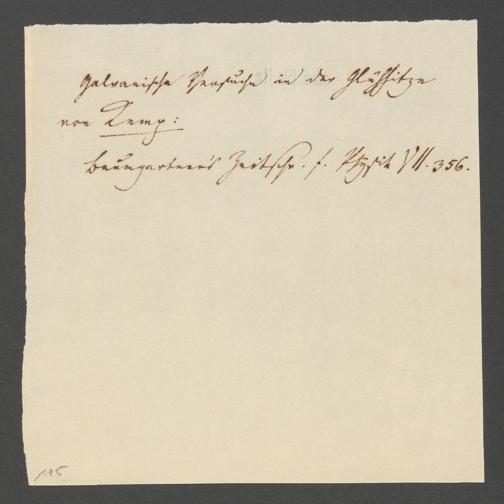 Galvanische Versuche in der Glühhitze
von Kemp:
Baumgartner's Zeitschr. f. Physik VII. 356.
115